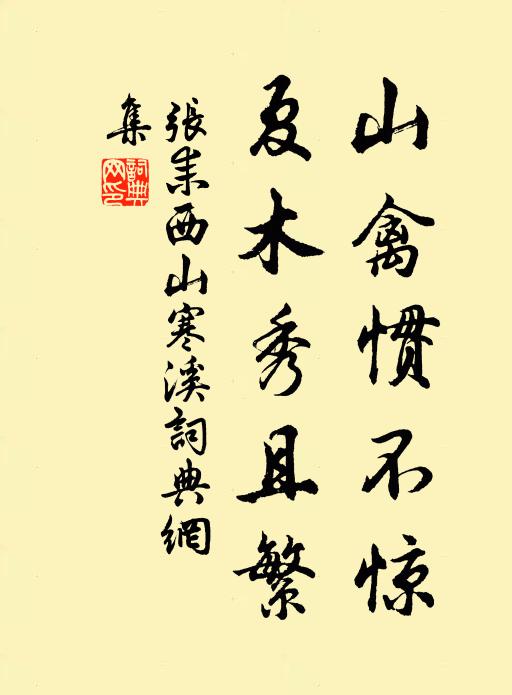 山禽惯不惊
夏木秀且繁
張耒西山寒溪詞典網
集
詞典
网印